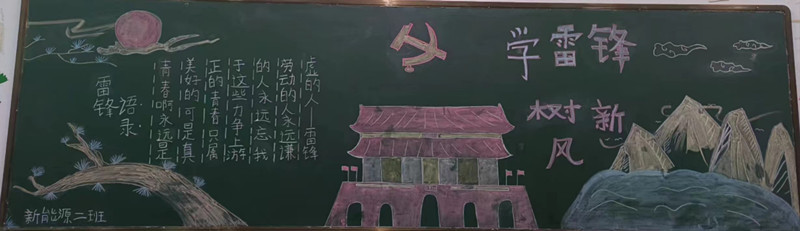 学雷锋
树新
风
雷锋
语录
青春啊永远是
美好的可是真
正的青春只属
于这些力争上游
的人永远忘我
劳动的人永远谦
虚的人—雷锋
新能源二班